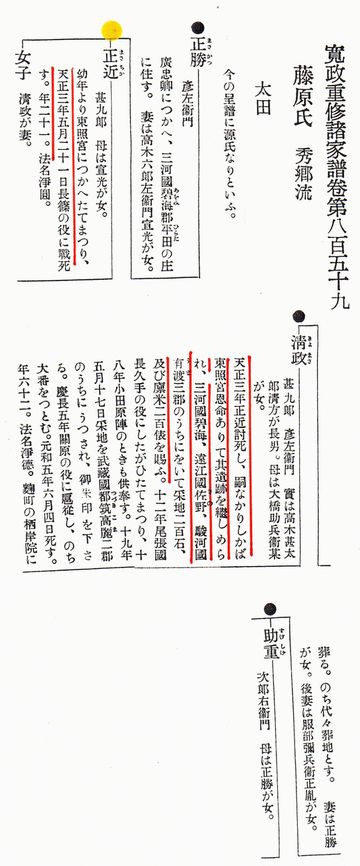 寛政重修諸家譜卷第八百五十九
藤原氏 秀郷流
太田
今の呈譜に源氏なりといふ。
正勝
まさかつ
彦左衞門
廣忠卿につかへ、三河國碧海郡平田の庄
あをみ
ひらた
に住す。 妻は高木六郎左衞門宣光が女。
正近
まさちか
甚九郎 母は宣光が女。
幼年より東照宮につかへたてまつり、
天正三年五月二十一日長篠の役に戰死
す。年二十一。法名淨圓。
女子
清政が妻。
清政
きよまさ
甚九郎 彦左衞門 實は高木甚太
郎清方が長男。母は大橋助兵衞某
が女。
天正三年正近討死し、嗣なかりしかば
東照宮恩命ありて其遺跡を繼しめら
れ、三河國碧海、遠江國佐野、駿河國
有渡三郡のうちにをいて采地二百石、
及び廩米二百俵を賜ふ。十二年尾張國
長久手の役にしたがひたてまつり、十
八年小田原陣のときも供奉す。十九年
五月十七日采地を武藏國都筑高麗二郡
のうちにうつされ、御朱印を下さ
る。慶長五年關原の役に扈從し、のち
大番をつとむ。元和五年六月四日死す。
年六十二。法名淨德。麴町の栖岸院に
葬る。のち代々葬地とす。 妻は正勝
が女。後妻は服部彌兵衞正胤が女。
助重
すけしげ
次郎右衞門 母は正勝が女。